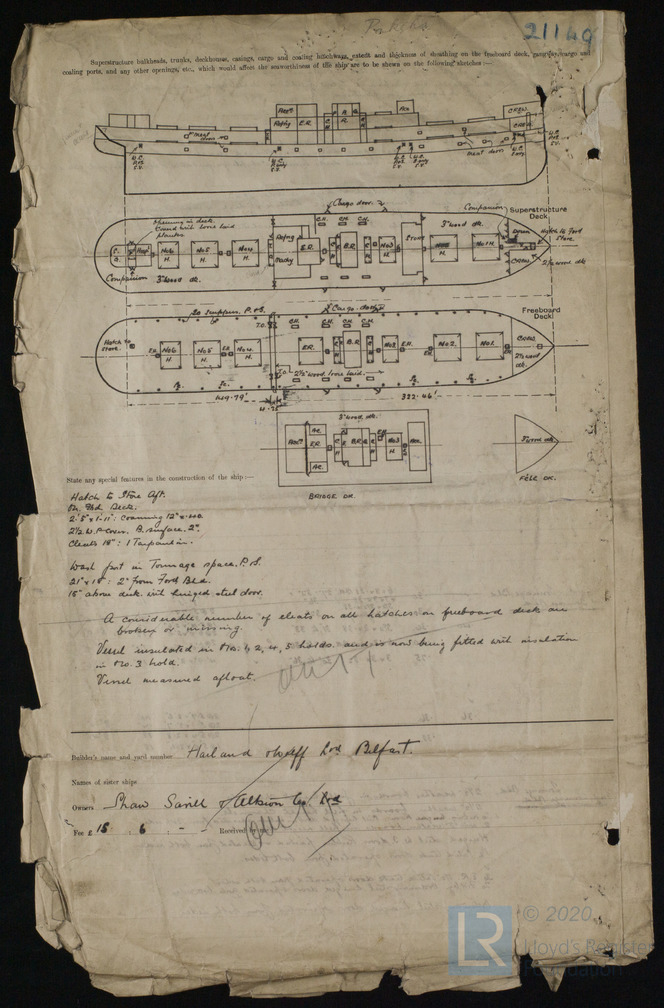 21149
Superstructure bulkheads, trunks, deckhouses, casings, cargo and coaling hatchways, extent and thickness of sheathing on the freeboard deck, gangway, cargo and
coaling ports, and any other openings, etc., which would affect the seaworthiness of the ship are to be shewn on the following sketches:—
CREW
E.R.
Cargo doors 2
Companion
Superstructure
Deck
Opening in deck.
Covered with loose laid
planks
C.H. C.H. C.H.
3" wood dk.
Hatch to Fore
Store
Refrig
Machy
E.R.
B.R.
No 3
H.
No 6
H.
No 5
H.
No 4
H.
No 1 H.
CREW
Companion
3" wood dk.
2½ wood dk.
Freeboard
Deck
C.H. C.H. C.H. C.H.
Hatch to
store
No 6
H.
No 5
H.
No 4
H.
E.R.
B.R.
No 3
H.
No 2.
H.
No 1.
H.
Crew
2½ wood
dk.
2½ wood. loose laid.
149.79'
322.46'
3" wood dk.
E.R.
B.R.
No 3
H
3" wood dk.
BRIDGE DK.
FCLE DK.
State any special features in the construction of the ship:—
Hatch to Store Aft.
On Fbd Deck.
2'5" x 1'11": Coaming 12" x .40
2½ W.P. Cover. B. surface. 2".
Cleats 18": 1 Tarpaulin.
Wash port in Tonnage space. P. & S.
21" x 18": 2' from Ford Bld.
15" above deck. with hinged steel door.
A considerable number of cleats on all hatches on freeboard deck are
broken or missing.
Vessel insulated in Nos. 1, 2, 4, 5 holds. and is now being fitted with insulation
in No. 3 hold.
Vessel measured afloat.
Builder's name and yard number Harland & Wolff Ltd Belfast.
Names of sister ships
Owners Shaw Savill & Albion Co. Ltd
Fee £ 15 : 6 : - : - Received
LR
© 2020
Lloyd's Register
Foundation